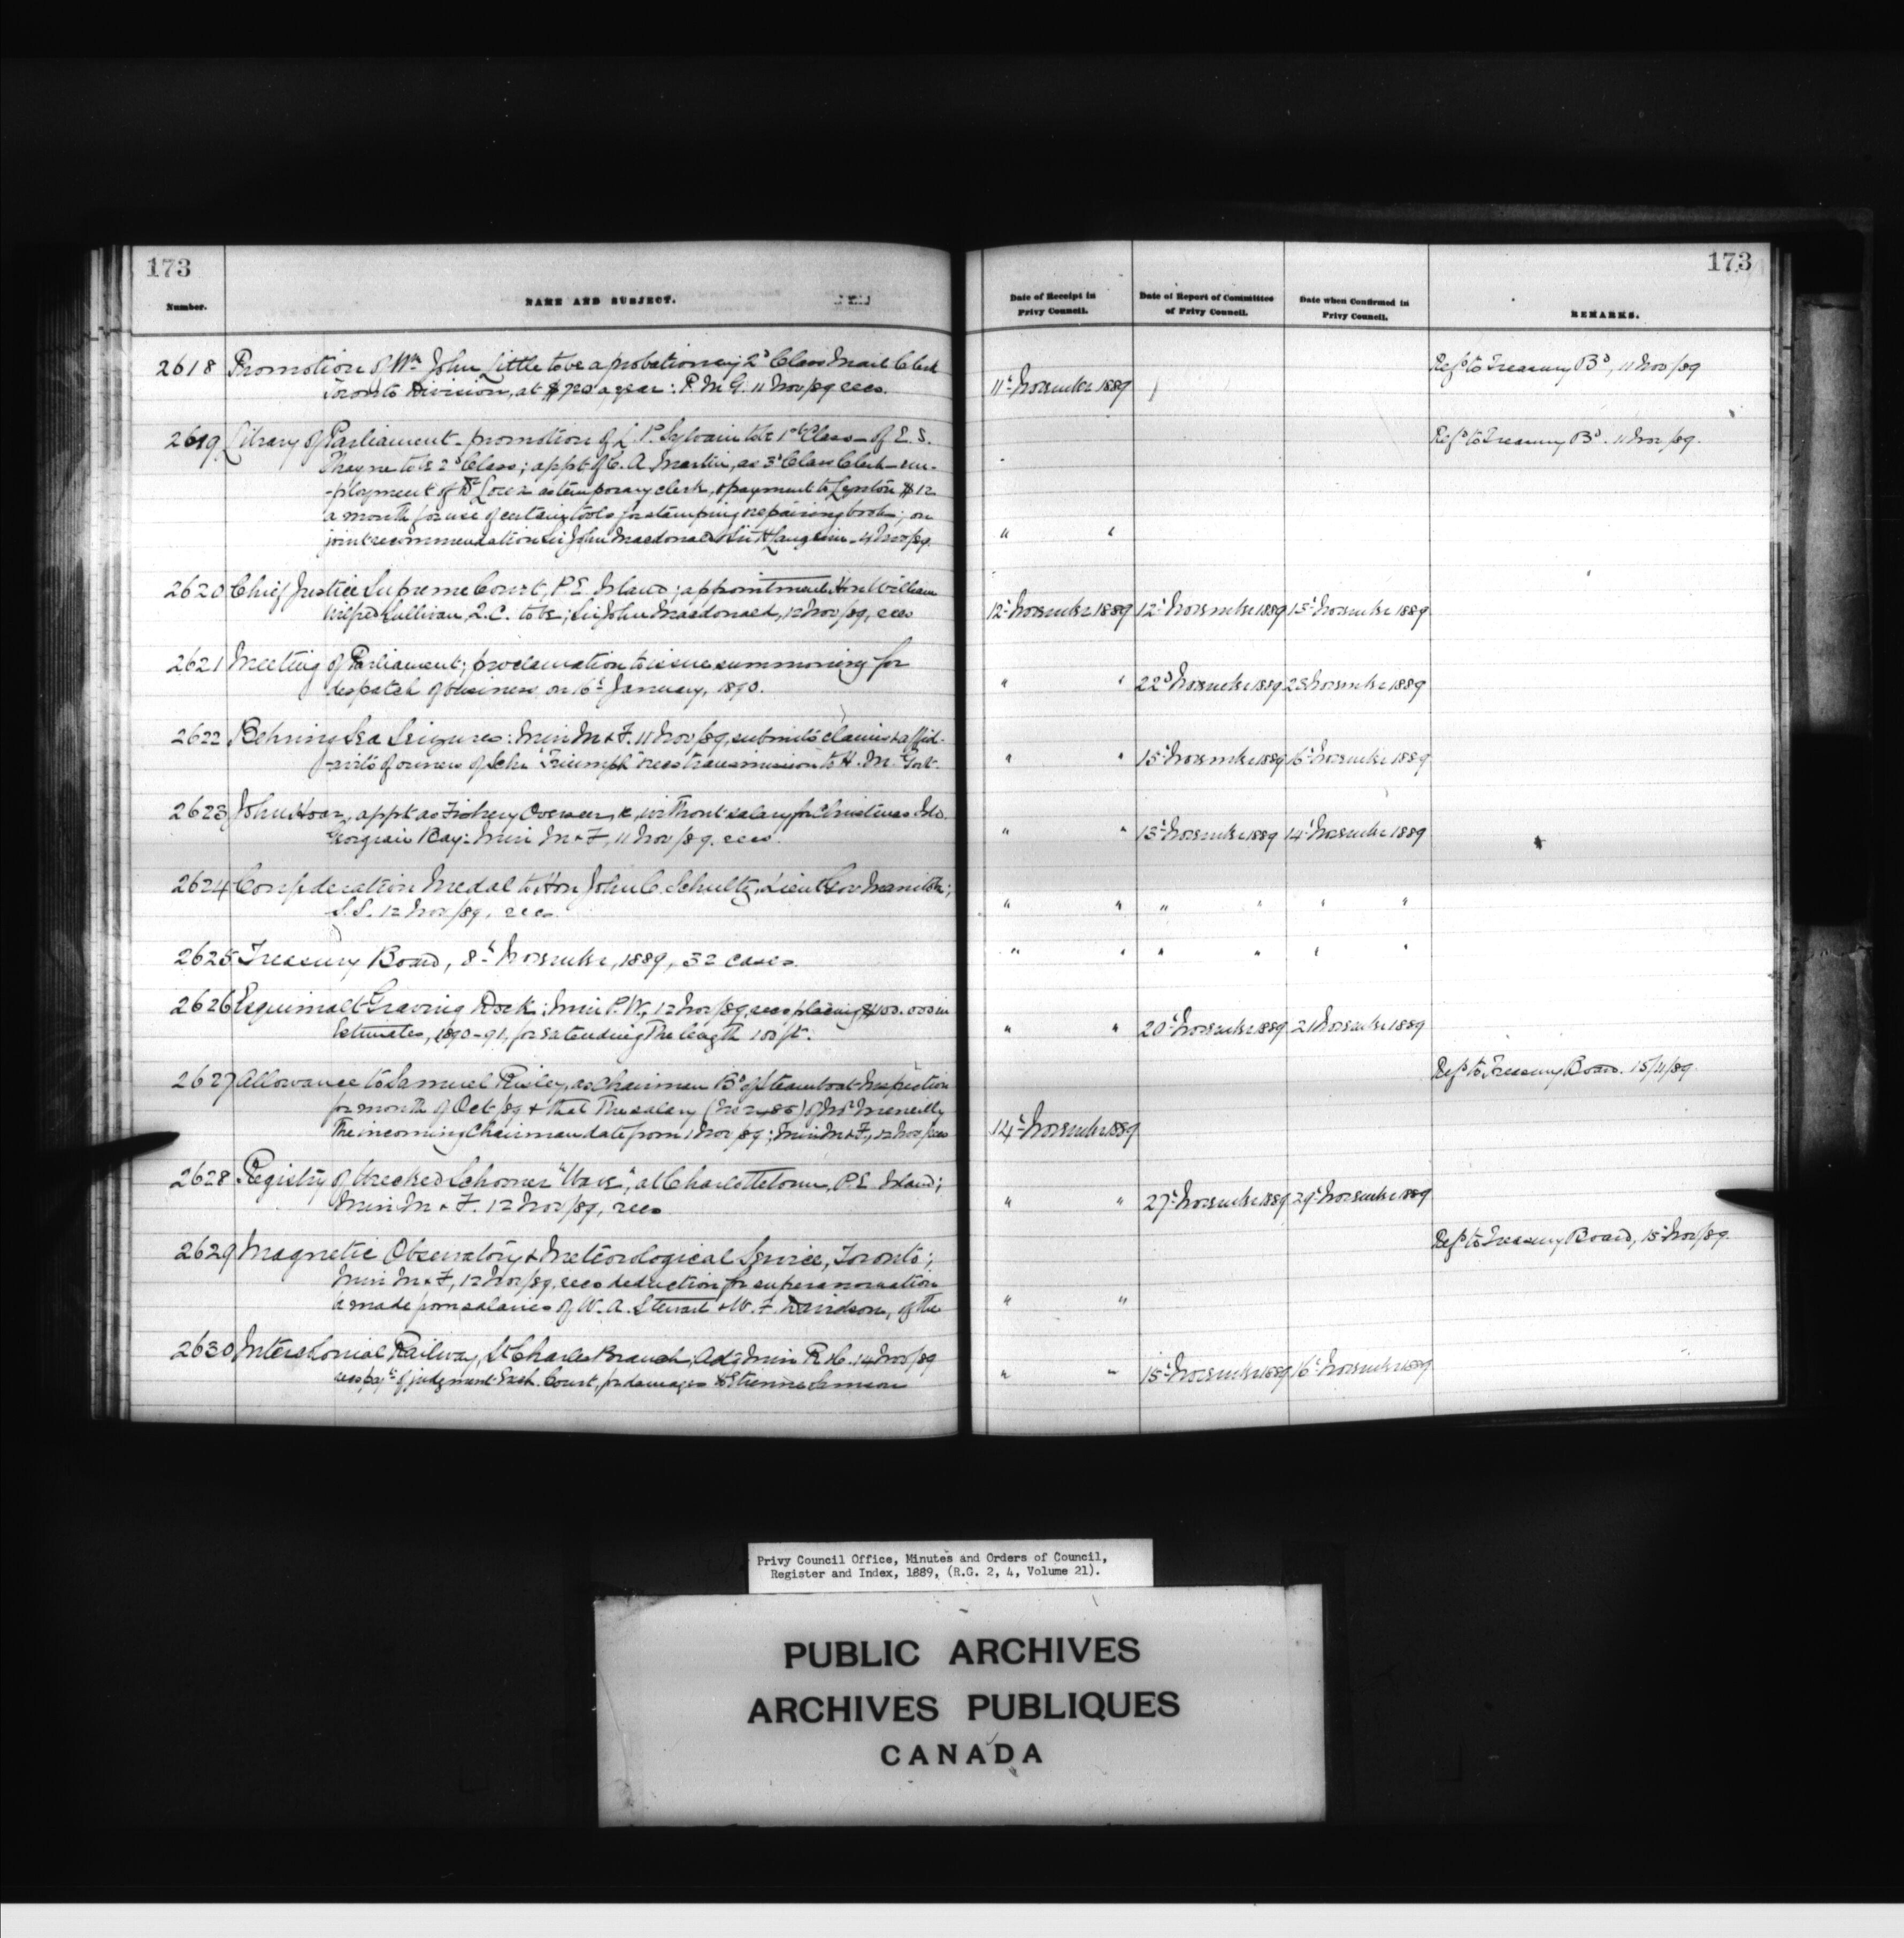 173
Number.
NAME AND SUBJECT.
2618 Promotion of Mr John Little to be a probationary 2d Class Mail Clerk
Toronto Division, at $720 a year: P.M.G. 11 Nov/89 recs.
2619 Library of Parliament - promotion of L. P. Sylvain to be 1st Class - of E. S.
to be 2d Class; appt of C. A. Martin, as 3d Class Clerk - em-
-ployment of as temporary clerk, & payment to $12
a month for use of certain tools for stamping & repairing books; on
joint recommendation Sir John Macdonald & Sir H Langevin - 4 Nov/89.
2620 Chief Justice Supreme Court, P.E. Island; appointment Hon William
Wilfred Sullivan, Q.C. to be; Sir John Macdonald, 12 Nov/89, recs
2621 Meeting of Parliament; proclamation to issue summoning for
despatch of business on 16th January, 1890.
2622 Behring Sea Seizures: Min M & F. 11 Nov/89, submits claims & affid-
-avits of owners of Schr "Triumph" recs transmission to H. M. Govt.
2623 John Hoar, appt as Fishery Overseer, &c, without salary for Christian Isld.
Georgian Bay: Min M & F, 11 Nov/89. recs.
2624 Confederation Medal to Hon John C. Schultz, Lieut Gov Manitba;
S.S. 12 Nov/89, recs.
2625 Treasury Board, 8th November, 1889, 32 cases.
2626 Esquimalt Graving Dock: Min P.W, 12 Nov/89, recs placing $100.000 in
Estimates, 1890-91, for extending the length 100 ft.
2627 Allowance to Samuel Risley, as Chairman Bd of Steamboat Inspection
for month of Oct/89 & that the salary of Mr Meneilly
the incoming Chairman date from 1 Nov/89; Min M & F, 12 Nov/recs
2628 Registry of Wrecked Schooner "Wave", at Charlottetown, P.E. Island;
Min M & F. 12 Nov/89, recs
2629 Magnetic Observatory & Meteorological Service, Toronto;
Min M & F, 12 Nov/89, recs deduction for superannuation
be made from salaries of W. A. Stewart & W. F. Davidson, of the
2630 Intercolonial Railway, St Charles Branch; Actg Min R & C. 14 Nov/89
recs payt of judgment Exch. Court, for damages to Etienne Samson
173
Date of Receipt in
Privy Council.
Date of Report of Committee
of Privy Council.
Date when Confirmed in
Privy Council.
REMARKS.
Refd to Treasury Bd, 11 Nov/89
11th November 1889
Refd to Treasury Bd. 11 Nov/89.
" "
12th November 1889 12th November 1889 15th November 1889
" " 22d November 1889 23 November 1889
" " 15th November 1889 16th November 1889
" " 13th November 1889 14th November 1889
" " " " " "
" " " " " "
" " 20th November 1889 21 November 1889
Refd to Treasury Board. 15/11/89.
14th November 1889
" " 27th November 1889 29th November 1889
Refd to Treasury Board, 15th Nov/89.
" "
" " 15th November 1889 16th November 1889
Privy Council Office, Minutes and Orders of Council,
Register and Index, 1889, (R.G. 2, 4, Volume 21).
PUBLIC ARCHIVES
ARCHIVES PUBLIQUES
CANADA